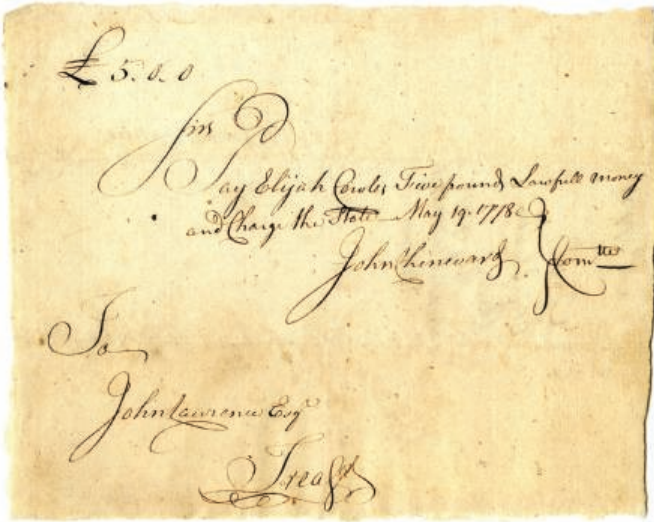 £ 5. 0. 0
Sir
Pay Elijah Cowles Five pounds Lawfull money
and Charge the State May 19. 1778
John Chenevard } Comtte
To
John Lawrence Esqr
Treasr